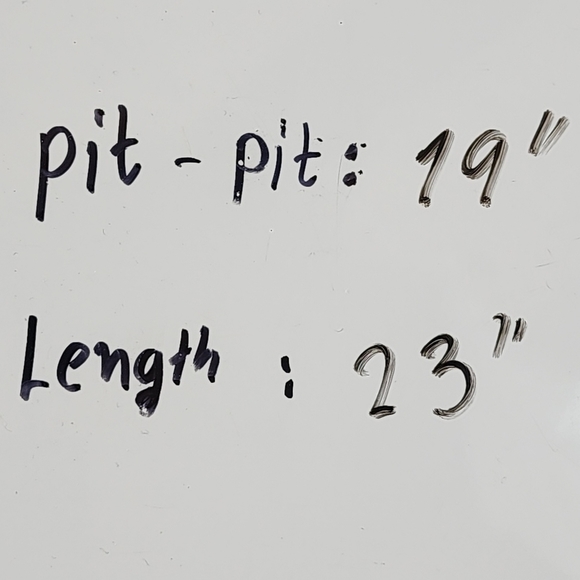 pit - pit : 19"
Length : 23"